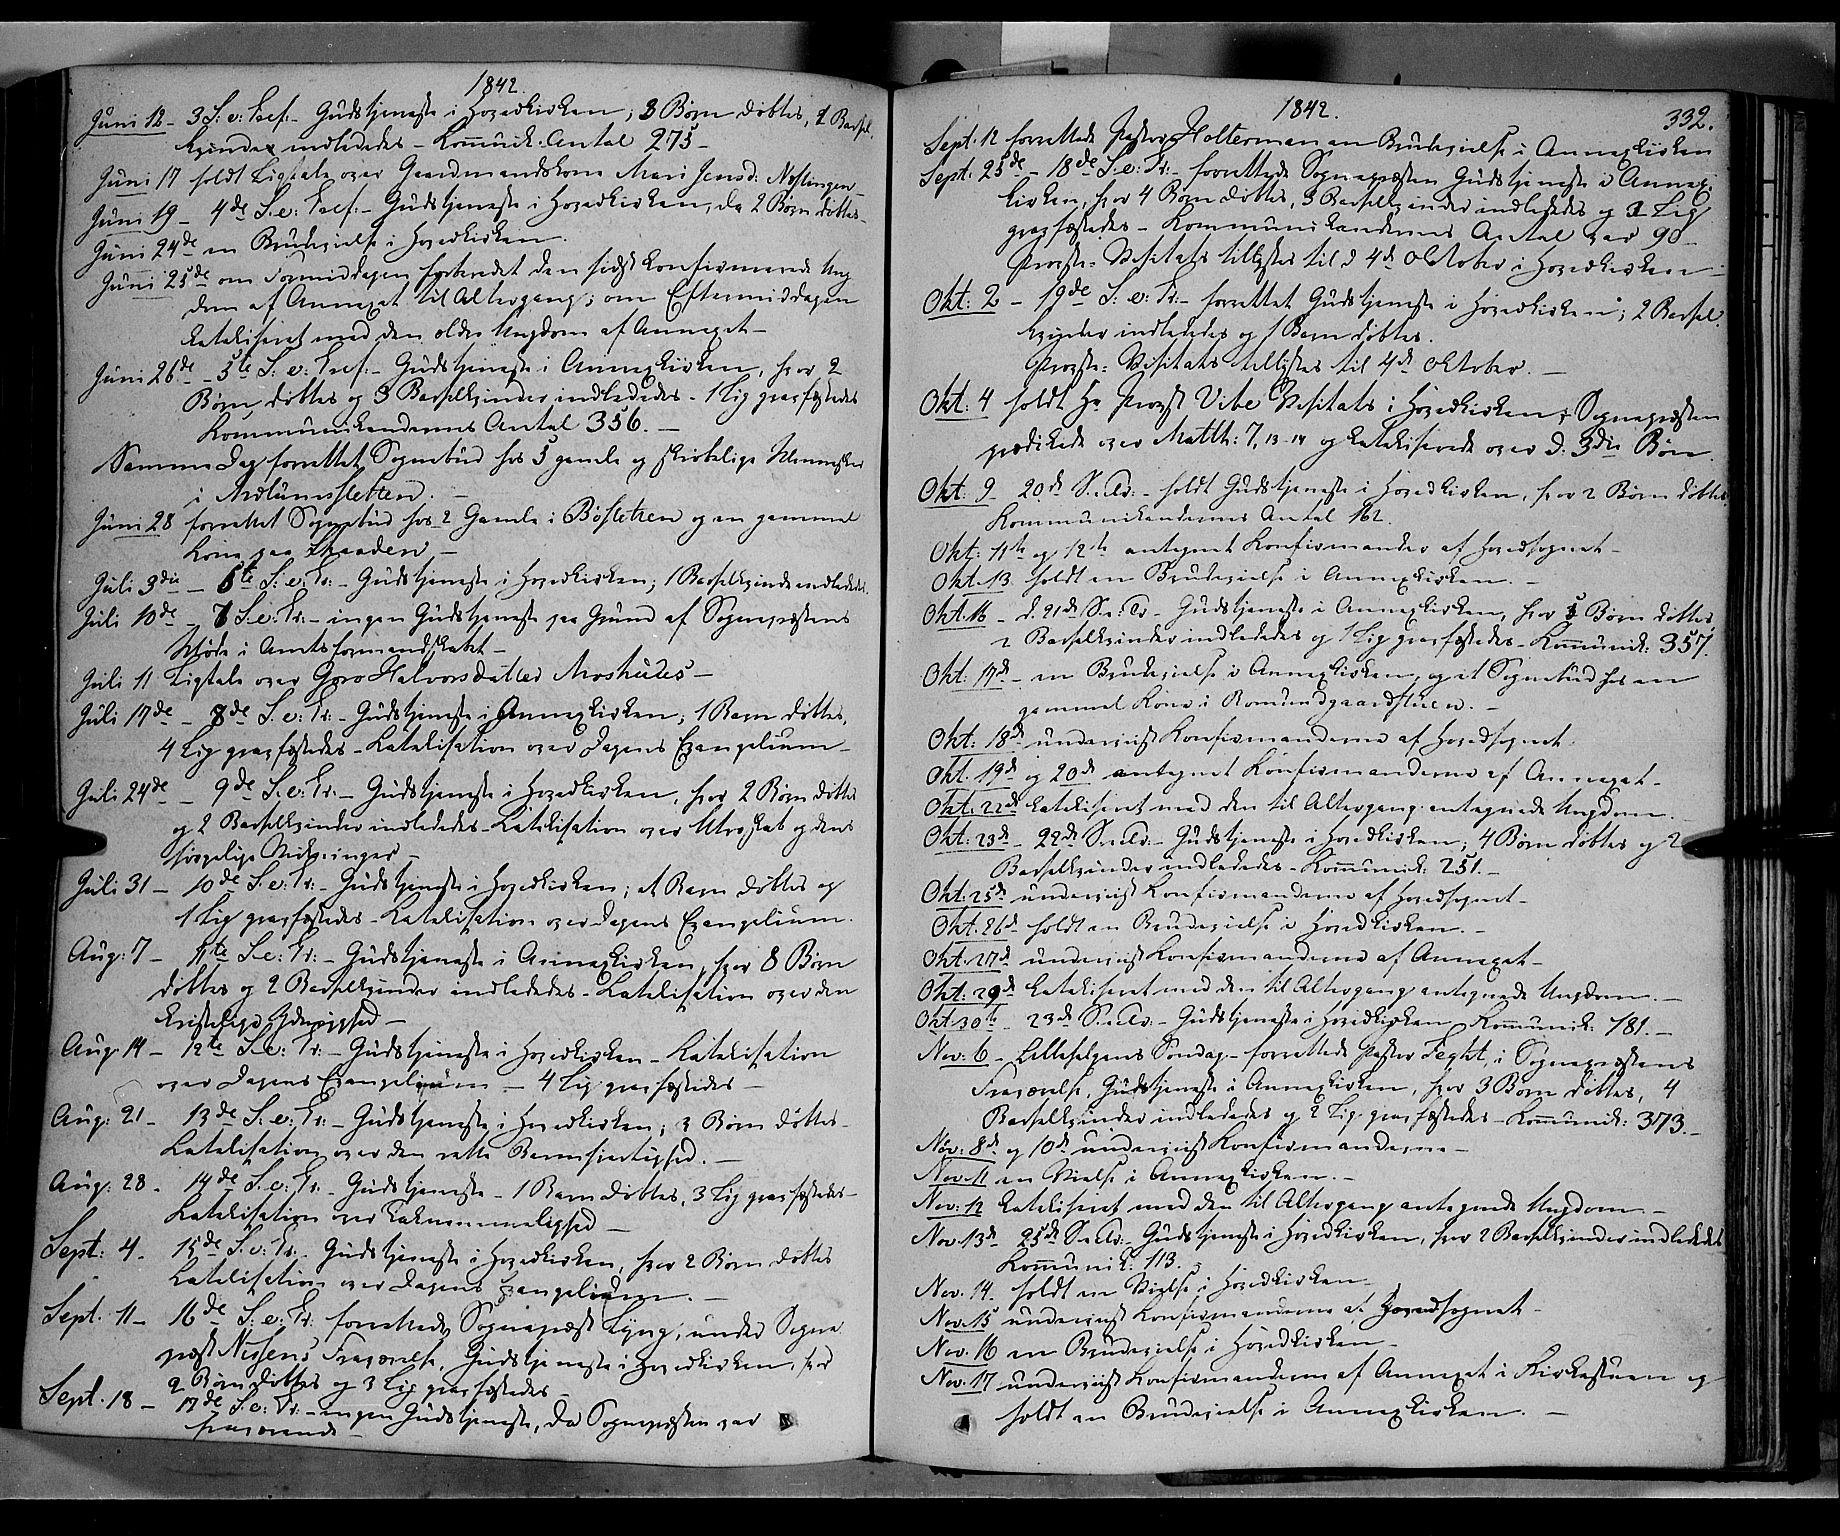 1842.
Juni 12 – 3 S: e: Tref: – Gudstjeneste i Hovedkirken; 3 Børn døbtes, 2 Barsel-
kvinder indlededes – Kommunik. Antal 275 –
Juni 17 holdt Ligtale over Gaardmandskone Mari Jensd:
Juni 19 – 4de S. e: Tref: – Gudstjeneste i Hovedkirken, da 2 Børn døbtes –
Juni 24de en Brudevielse i Hovedkirken.
Juni 25de om Formiddagen forberedet den sidst konfirmerede Ung
dom af Annexet til Altergang; om Eftermiddagen
katekiseret med den ældre Ungdom af Annexet –
Juni 26de – 5te S: e: Tref: – Gudstjeneste i Annexkirken, hvor 2
Børn døbtes og 3 Barselkvinder indlededes – 1 Lig gravfæstedes
Kommunikandernes Antal 356. –
Samme Dag forrettet Sognebud hos 5 gamle og skrøbelige Mennesker
i
Juni 28 forrettet Sognebud hos 2 Gamle i og en gammel
Kone paa –
Juli 3die – 6te S: e: Tr: – Gudstjeneste i Hovedkirken; 1 Barselkvinde indlededes.
Juli 10de – 7 S. e: Tr: – ingen Gudstjeneste paa Grund af Sognepræstens
Møde i Amtsformandskabet –
Juli 11 Ligtale over Goro Halvorsdatter Moshuus –
Juli 17de – 8de S. e: Tr: – Gudstjeneste i Annexkirken; 1 Barn døbtes,
4 Lig gravfæstedes – Katekisation over Dagens Evangelium –
Juli 24de – 9de S. e: Tr: – Gudstjeneste i Hovedkirken, hvor 2 Børn døbtes
og 2 Barselkvinder indlededes – Katekisation over Utroskab og dens
sørgelige Virkninger –
Juli 31 – 10de S. e: Tr: – Gudstjeneste i Hovedkirken; et Barn døbtes og
1 Lig gravfæstedes – Katekisation over Dagens Evangelium.
Aug: 7 – 11te S. e: Tr: – Gudstjeneste i Annexkirken, hvor 8 Børn
døbtes og 2 Barselkvinder indlededes – Katekisation over den
kristelige Ydmyghed –
Aug: 14 – 12te S. e: Tr: – Gudstjeneste i Hovedkirken – Katekisation
over Dagens Evangelium – 4 Lig gravfæstedes –
Aug: 21 – 13de S. e: Tr: – Gudstjeneste i Hovedkirken; 3 Børn døbtes –
Katekisation over den rette Barmhjertighed. –
Aug: 28 – 14de S. e: Tr: – Gudstjeneste – 1 Barn døbtes, 3 Lig gravfæstedes –
Katekisation over Taknemmelighed –
Sept: 4 – 15de S. e: Tr: – Gudstjeneste i Hovedkirken, hvor 2 Børn døbtes
Katekisation over Dagens Evangelium. –
Sept. 11 – 16de S. e: Tr: forrettede Sognepræst Lyng, under Sogne
præst Nissens Fraværelse, Gudstjeneste i Hovedkirken, hvor
2 Børn døbtes og 3 Lig gravfæstedes –
Sept. 18 – 17de S. e: Tr: – ingen Gudstjeneste, da Sognepræsten var
fraværende –
1842.
332.
Sept. 12 forrettede Pastor Holterman en Brudevielse i Annexkirken
Sept. 25de – 18de S. e: Tr: – forrettede Sognepræsten Gudstjeneste i Annex-
kirken, hvor 4 Børn døbtes, 3 Barselkvinder indlededes og 2 Lig
gravfæstedes – Kommunikandernes Antal var 90 –
Provste-Visitats tillystes til d 4de Oktober i Hovedkirken –
Okt: 2 – 19de S: e: Tr: – forrettet Gudstjeneste i Hovedkirken; 2 Barsel-
kvinder indlededes og 1 Barn døbtes.
Provste-Visitats tillystes til 4de Oktober. –
Okt: 4 holdt Hr Provst Vibe Visitats i Hovedkirken; Sognepræsten
prædikede over Matth: 7, 13-14 og katekiserede over d: 3die Bøn.
Okt: 9 – 20de S. e. Tr: – holdt Gudstjeneste i Hovedkirken, hvor 2 Børn døbtes
Kommunikandernes Antal 162.
Okt: 11te og 12te antegnet Konfirmander af Hovedsognet –
Okt. 13 holdt en Brudevielse i Annexkirken. –
Okt. 16 – d. 21de S. e. Tr – Gudstjeneste i Annexkirken, hvor 5 Børn døbtes,
2 Barselkvinder indlededes og 1 Lig gravfæstedes – Kommunik: 357.
Okt: 17de – en Brudevielse i Annexkirken, og et Sognebud hos en
gammel Kone i Romundgaardstuen. –
Okt: 18de undervist Konfirmanderne af Hovedsognet.
Okt. 19de og 20de antegnet Konfirmanderne af Annexet –
Okt: 22de katekiseret med den til Altergang antegnede Ungdom.
Okt: 23de – 22de S. e. Tr: – Gudstjeneste i Hovedkirken; 4 Børn døbtes og 2
Barselkvinder indlededes – Kommunik: 251. –
Okt: 25de undervist Konfirmanderne af Hovedsognet –
Okt. 26de holdt en Brudevielse i Hovedkirken. –
Okt: 27de undervist Konfirmanderne af Annexet –
Okt: 29de katekiseret med den til Altergang antegnede Ungdom. –
Okt 30te – 23de S. e. Tr: – Gudstjeneste i Hovedkirken. Kommunik: 181. –
Nov: 6 – Allehelgens Søndag – forrettede Pastor Feght, i Sognepræstens
Fraværelse, Gudstjeneste i Annexkirken, hvor 3 Børn døbtes, 4
Barselkvinder indlededes og 2 Lig gravfæstedes – Kommunik: 373. –
Nov: 8de og 10de undervist Konfirmanderne –
Nov. 11 en Vielse i Annexkirken. –
Nov: 12 katekiseret med den til Altergang antegnede Ungdom. –
Nov. 13de 25de S. e. Tr: – Gudstjeneste i Hovedkirken, hvor 2 Barselkvinder indlededes
Kommunik: 113. –
Nov. 14 – holdt en Vielse i Hovedkirken –
Nov. 15 undervist Konfirmanderne af Hovedsognet –
Nov. 16 en Brudevielse i Hovedkirken –
Nov. 17 undervist Konfirmanderne af Annexet i Kirkestuen og
holdt en Brudevielse i Annexkirken. –